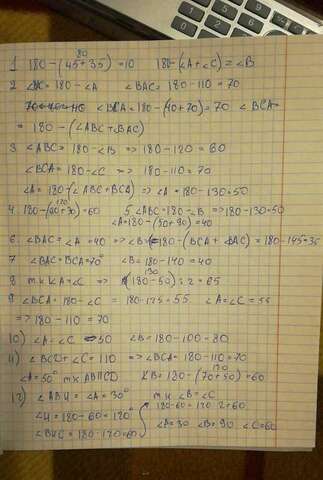 80
1 180-(45+35)=10 180-(∠A+∠C)=∠B
2 ∠A = 180-∠A ∠BAC = 180-110=70
∠BCA=180-(40+70)=70 ∠BCA=
= 180-(∠ABC+∠BAC)
3 ∠ABC=180-∠B => 180-120=60
∠BCA=180-∠C => 180-110=70
∠A=180-(∠ABC+BCA) => ∠A=180-130=50
120
4. 180-(90+30)=60 5 ∠ABC=180-∠B =>180-130=50
∠A=180-(50+90)=40
6 ∠BAC=∠A=40 => ∠B=180-(BCA+∠BAC)=180-145=35
7 ∠BAC=BCA=70° ∠B=180-140=40
130
8 т.к ∠A=∠C => (180-50):2=65
9 ∠BCA=180-∠C = 180-125=55 ∠A=∠C=55
=> 180-110=70
10) ∠A=∠C=50 ∠B=180-100=80
11) ∠BCD+∠C=110 => ∠BCA=180-110=70
120
∠A=50° т.к AB∏CD ∠B=180-(70+50)=60
12) ∠ABH=∠A=30° т.к ∠B=∠C
∠H=180-60=120° 180-60=120:2=60
∠BHC=180-120=60 ∠A=30 ∠B=90 ∠C=60